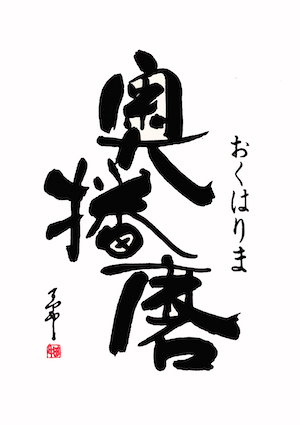 おくはりま
奥播磨